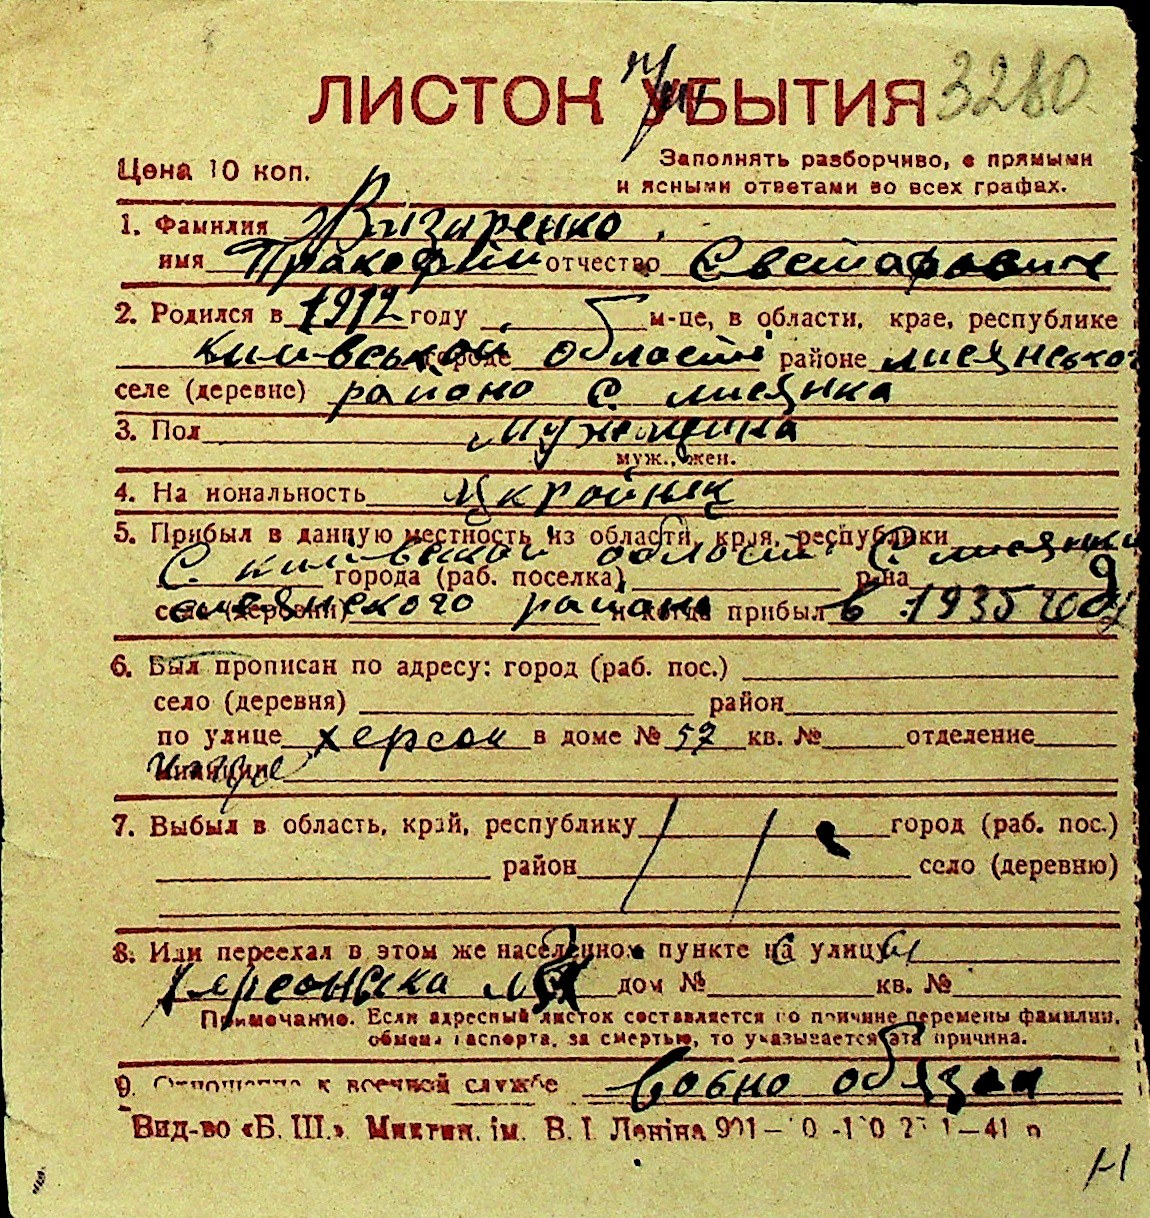 ЛИСТОК УБЫТИЯ 3280
Цена 10 коп.
Заполнять разборчиво, с прямыми
и ясными ответами во всех графах.
1. Фамилия
имя Прокофий отчество
2. Родился в 1912 году 5 м-це, в области, крае, республике
Київськой городе області районе лисянького
селе (деревне) району с. лисянка
3. Пол мужчина
муж., жен.
4. Национальность Українец
5. Прибыл в данную местность из области, края, республики
С київськой області С лисянки
города (раб. поселка) р-на
села (деревни) лисянского района и когда прибыл в 1935 году
6. Был прописан по адресу: город (раб. пос.)
село (деревня) район
по улице херсон в доме № 57 кв. № отделение
милиции
7. Выбыл в область, край, республику город (раб. пос.)
район село (деревню)
8. Или переехал в этом же населенном пункте на улицу
Херсонська дом № кв. №
Примечание. Если адресный листок составляется по причине перемены фамилии,
обмена паспорта, за смертью, то указывается эта причина.
9. Отношение к военной службе воено обязан
Вид-во «Б. Ш.» Миктин. ім. В. І Леніна
Н